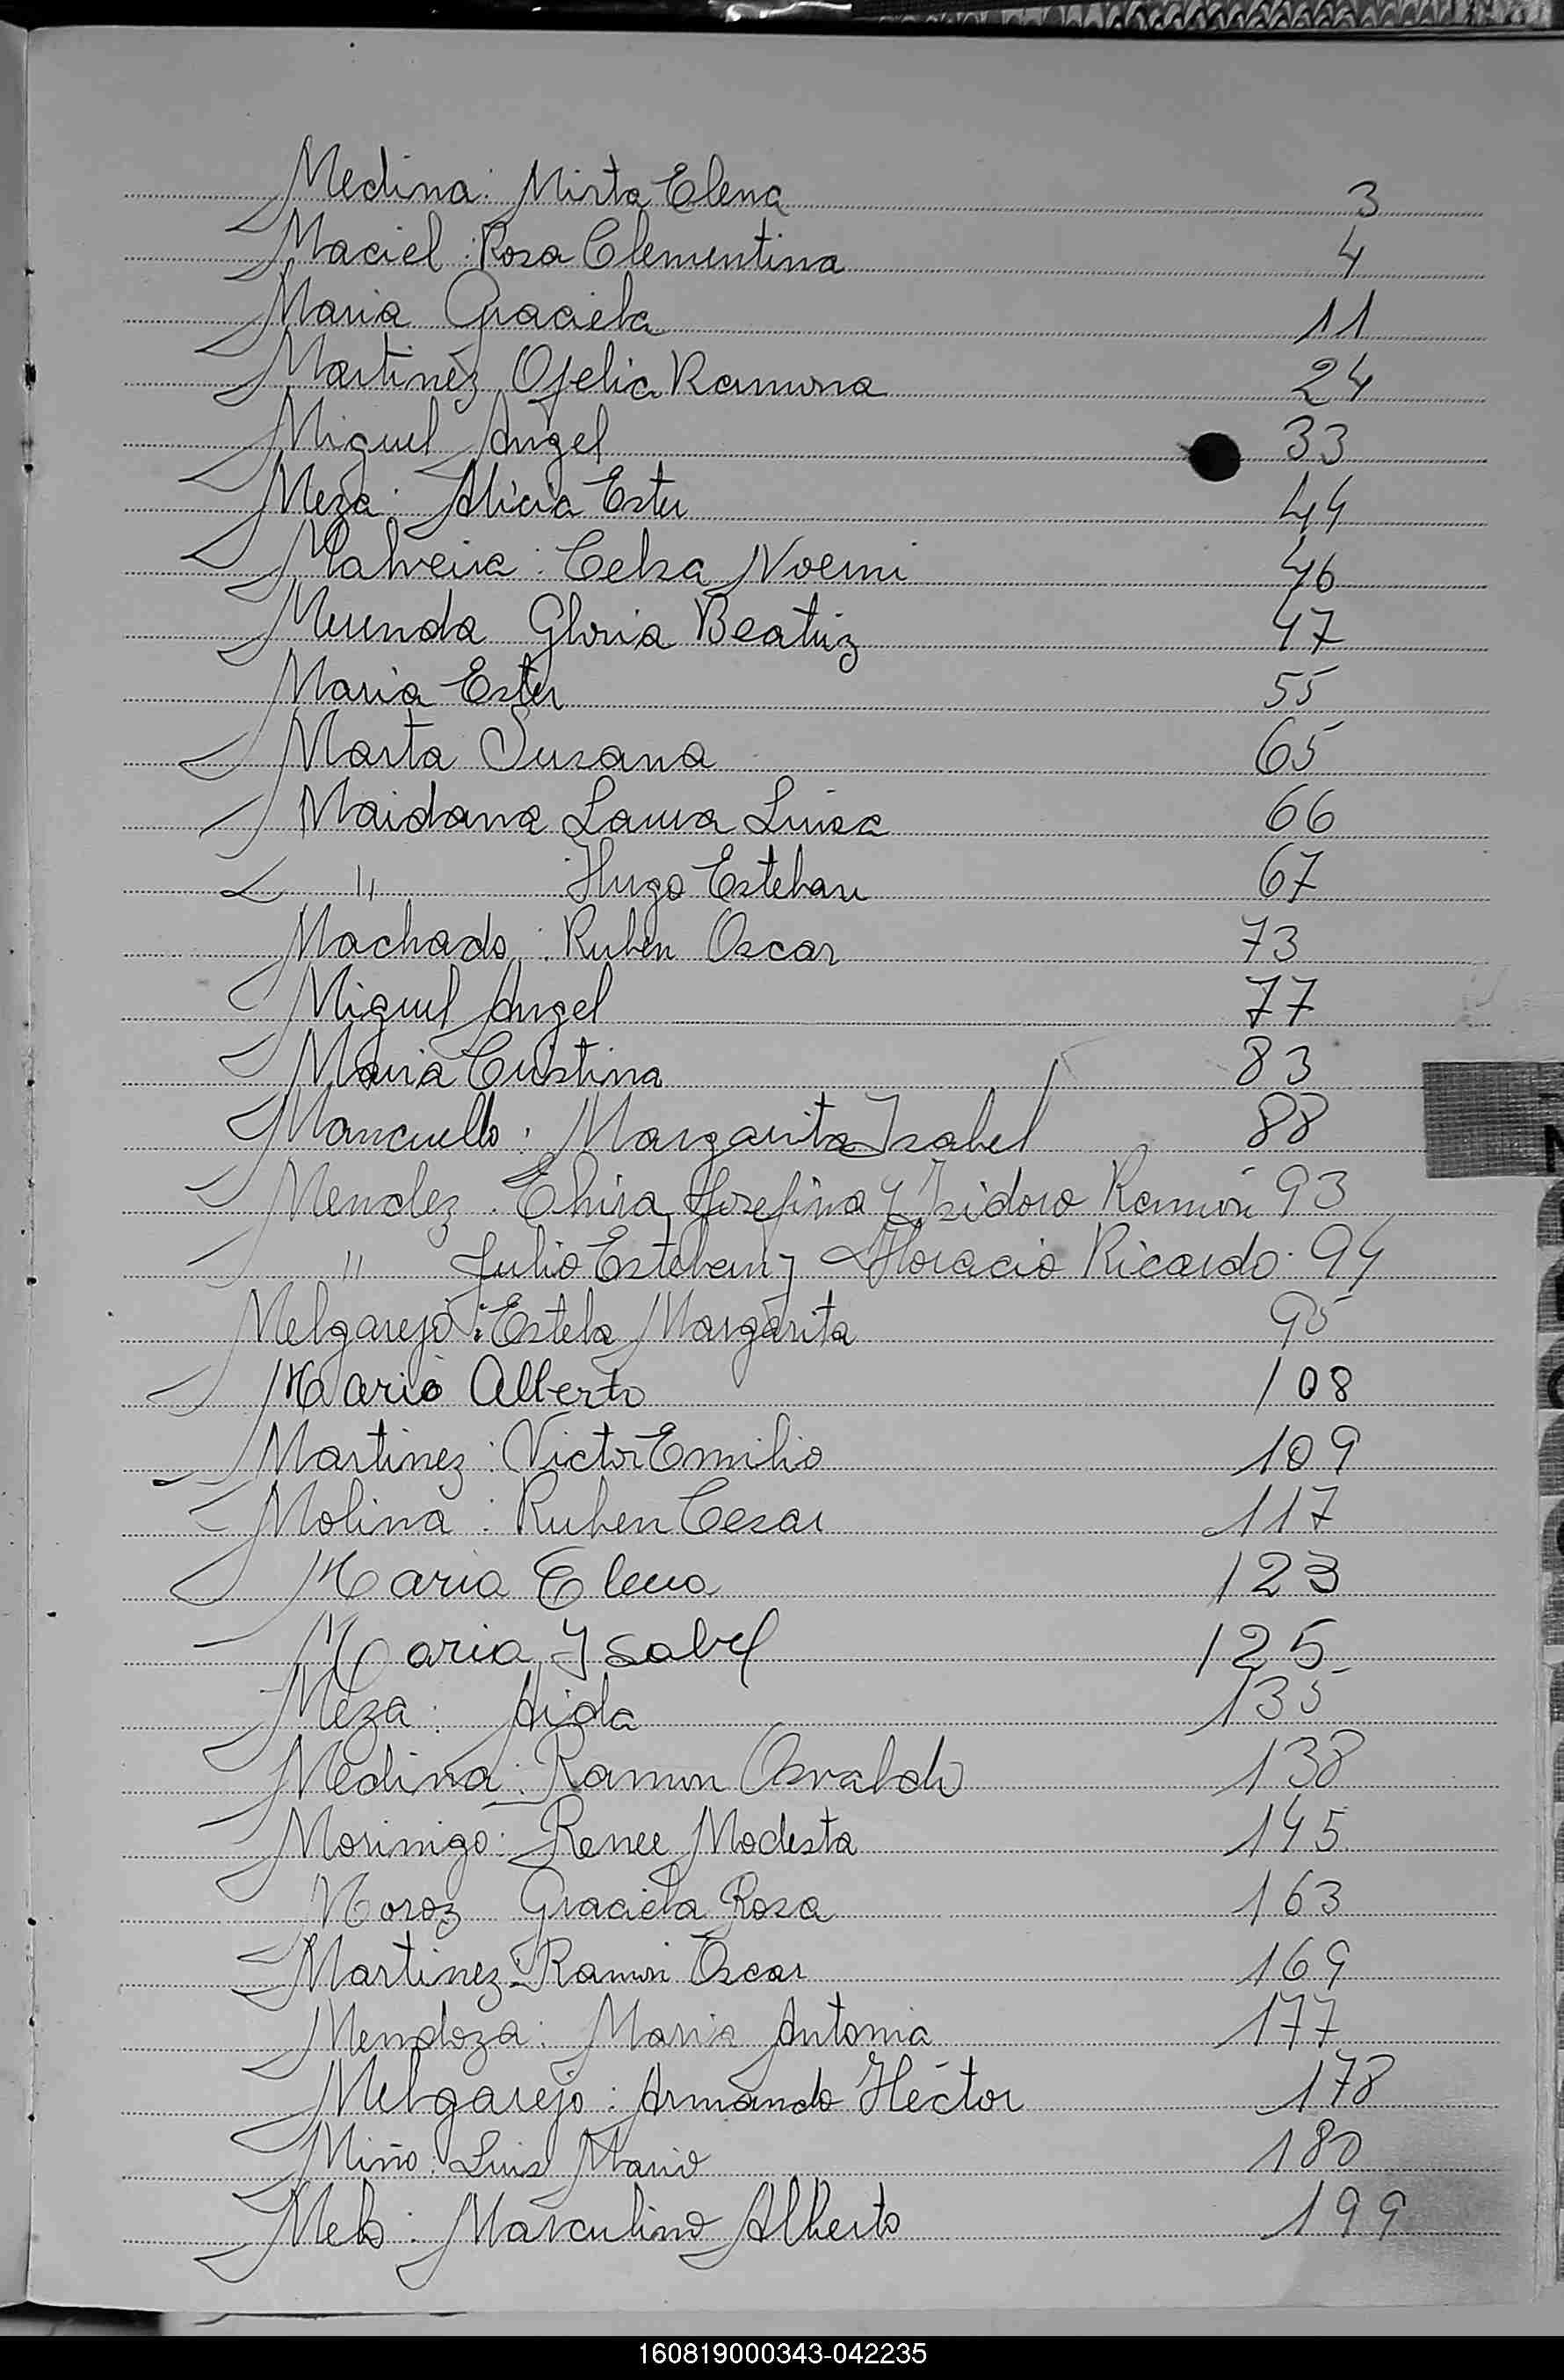 Medina: Mirta Elena 3
Maciel: Rosa Clementina 4
Maria Graciela 11
Martinez Ofelia Ramona 24
Miguel Angel 33
Meza: Alicia Ester 44
Malveira: Celsa Noemi 46
Merenda Gloria Beatriz 47
Maria Ester 55
Marta Susana 65
Maidana Laura Luisa 66
" Hugo Esteban 67
Machado: Ruben Oscar 73
Miguel Angel 77
Maria Cristina 83
Mancuello: Margarita Isabel 88
Mendez. Elvira Josefina y Isidoro Ramón 93
" Julio Esteban y Horacio Ricardo. 94
Melgarejo: Estela Margarita 95
Mario Alberto 108
Martinez: Victor Emilio 109
Molina: Ruben Cesar 117
Maria Elena 123
Maria Ysabel 125
Meza: Aida 135
Medina: Ramon Osvaldo 138
Morinigo: Renee Modesta 145
Moroz Graciela Rosa 163
Martinez: Ramón Oscar 169
Mendoza: Maria Antonia 177
Melgarejo: Armando Héctor 178
Miño: Luis Mario 180
Melo: Masculino Alberto 199
160819000343-042235